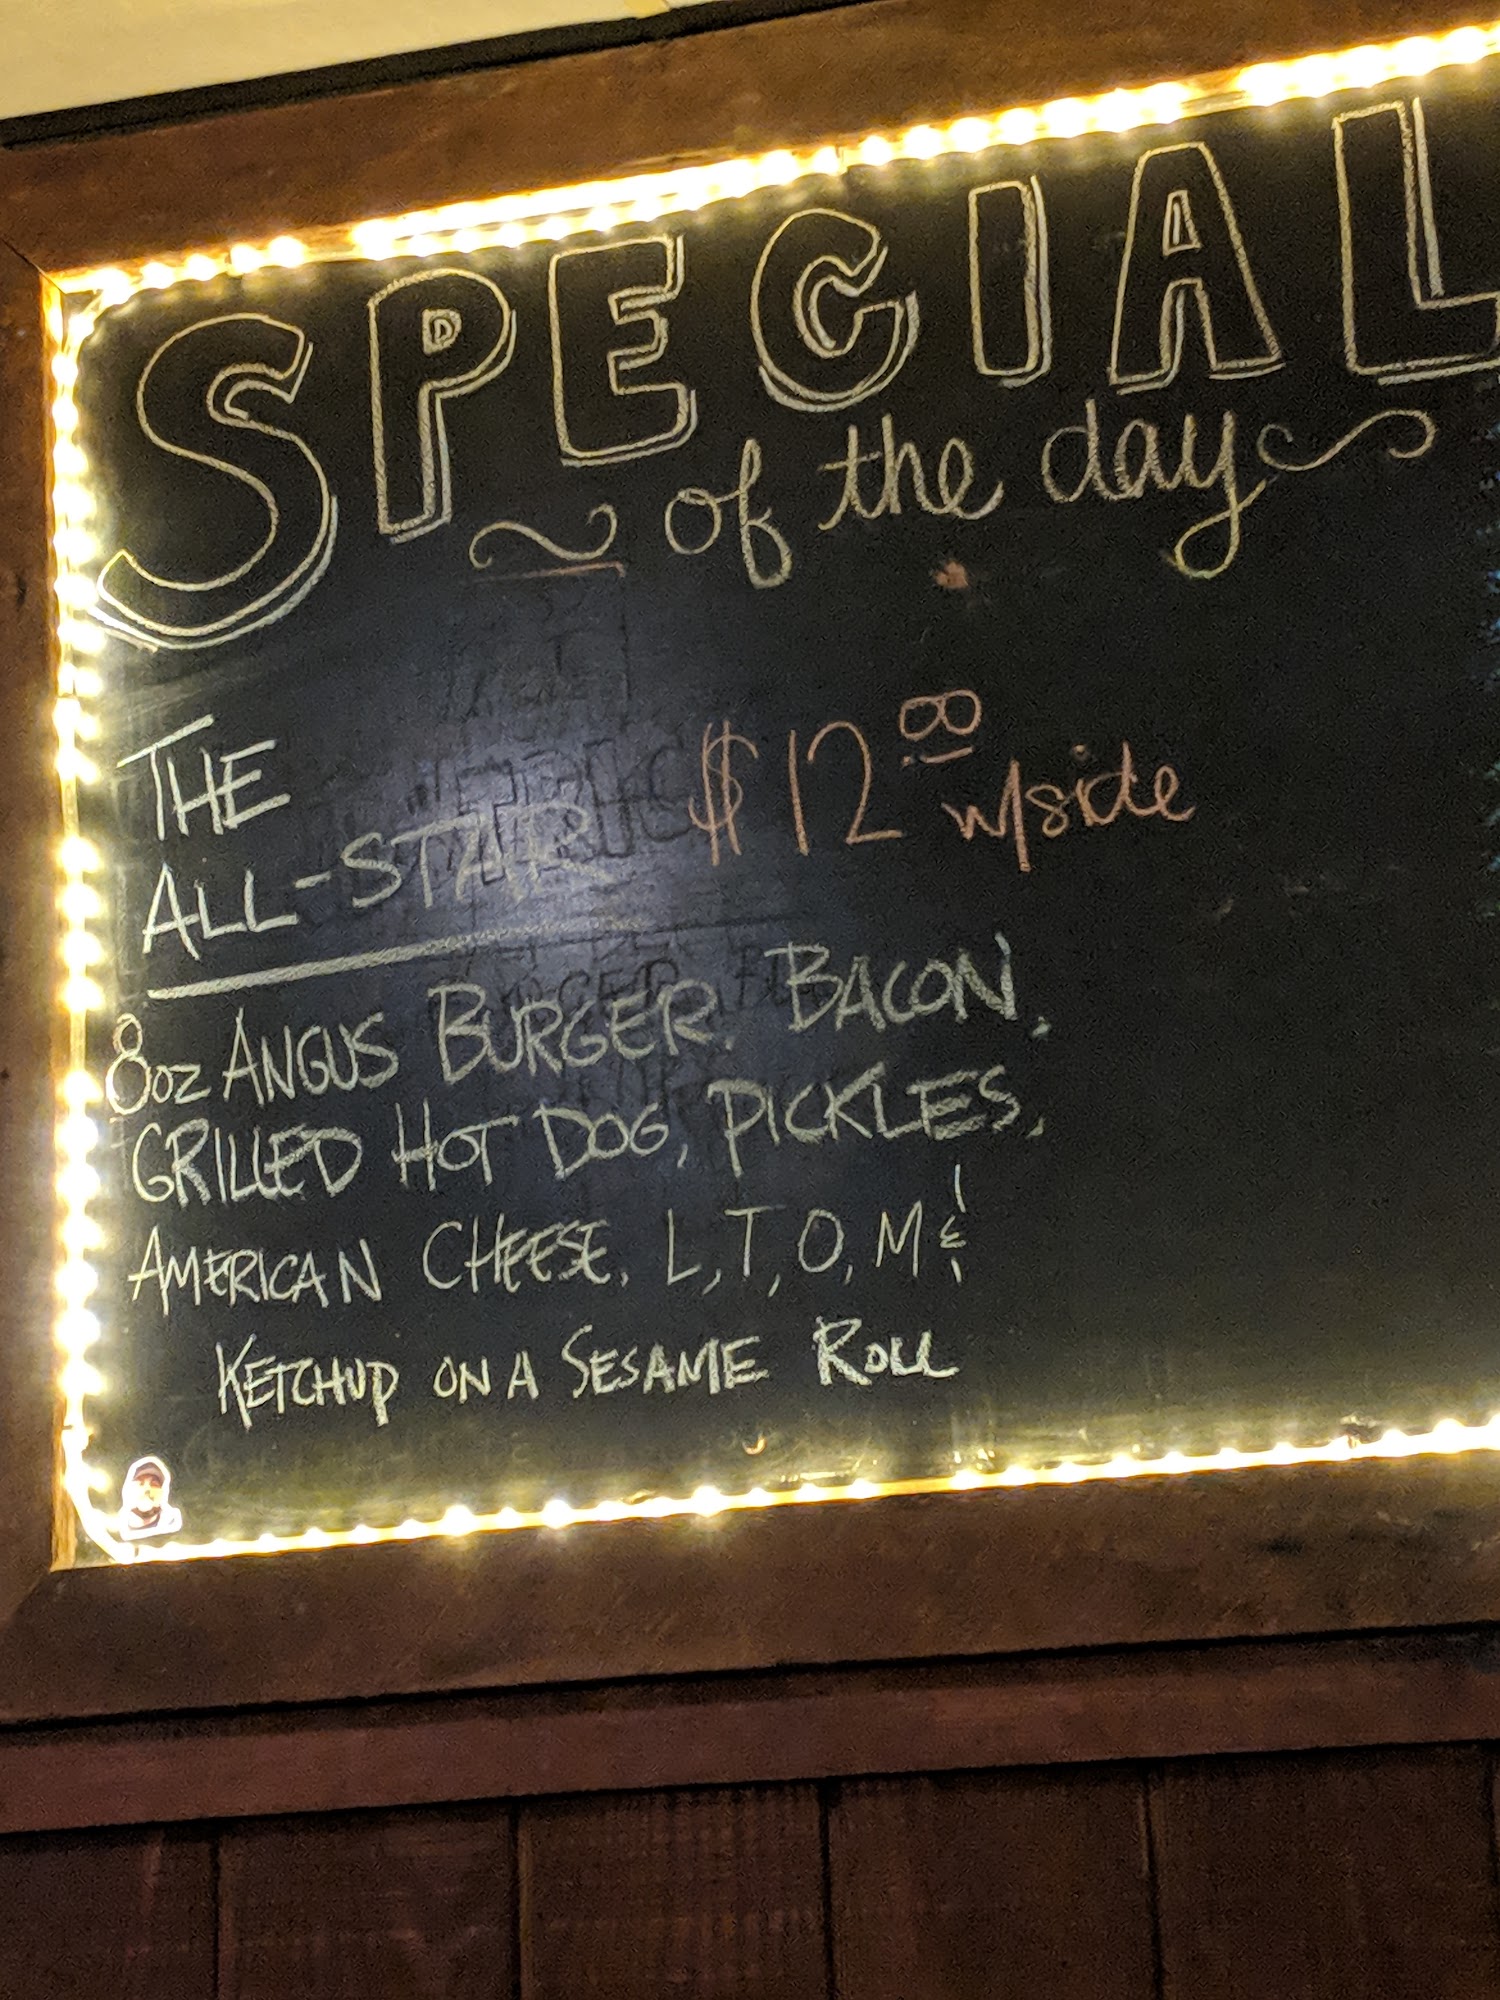 SPECIAL
of the day
THE
ALL-STAR
$12.00 w/side
8oz ANGUS BURGER, BACON,
GRILLED HOT DOG, PICKLES,
AMERICAN CHEESE, L, T, O, M &
KETCHUP ON A SESAME ROLL